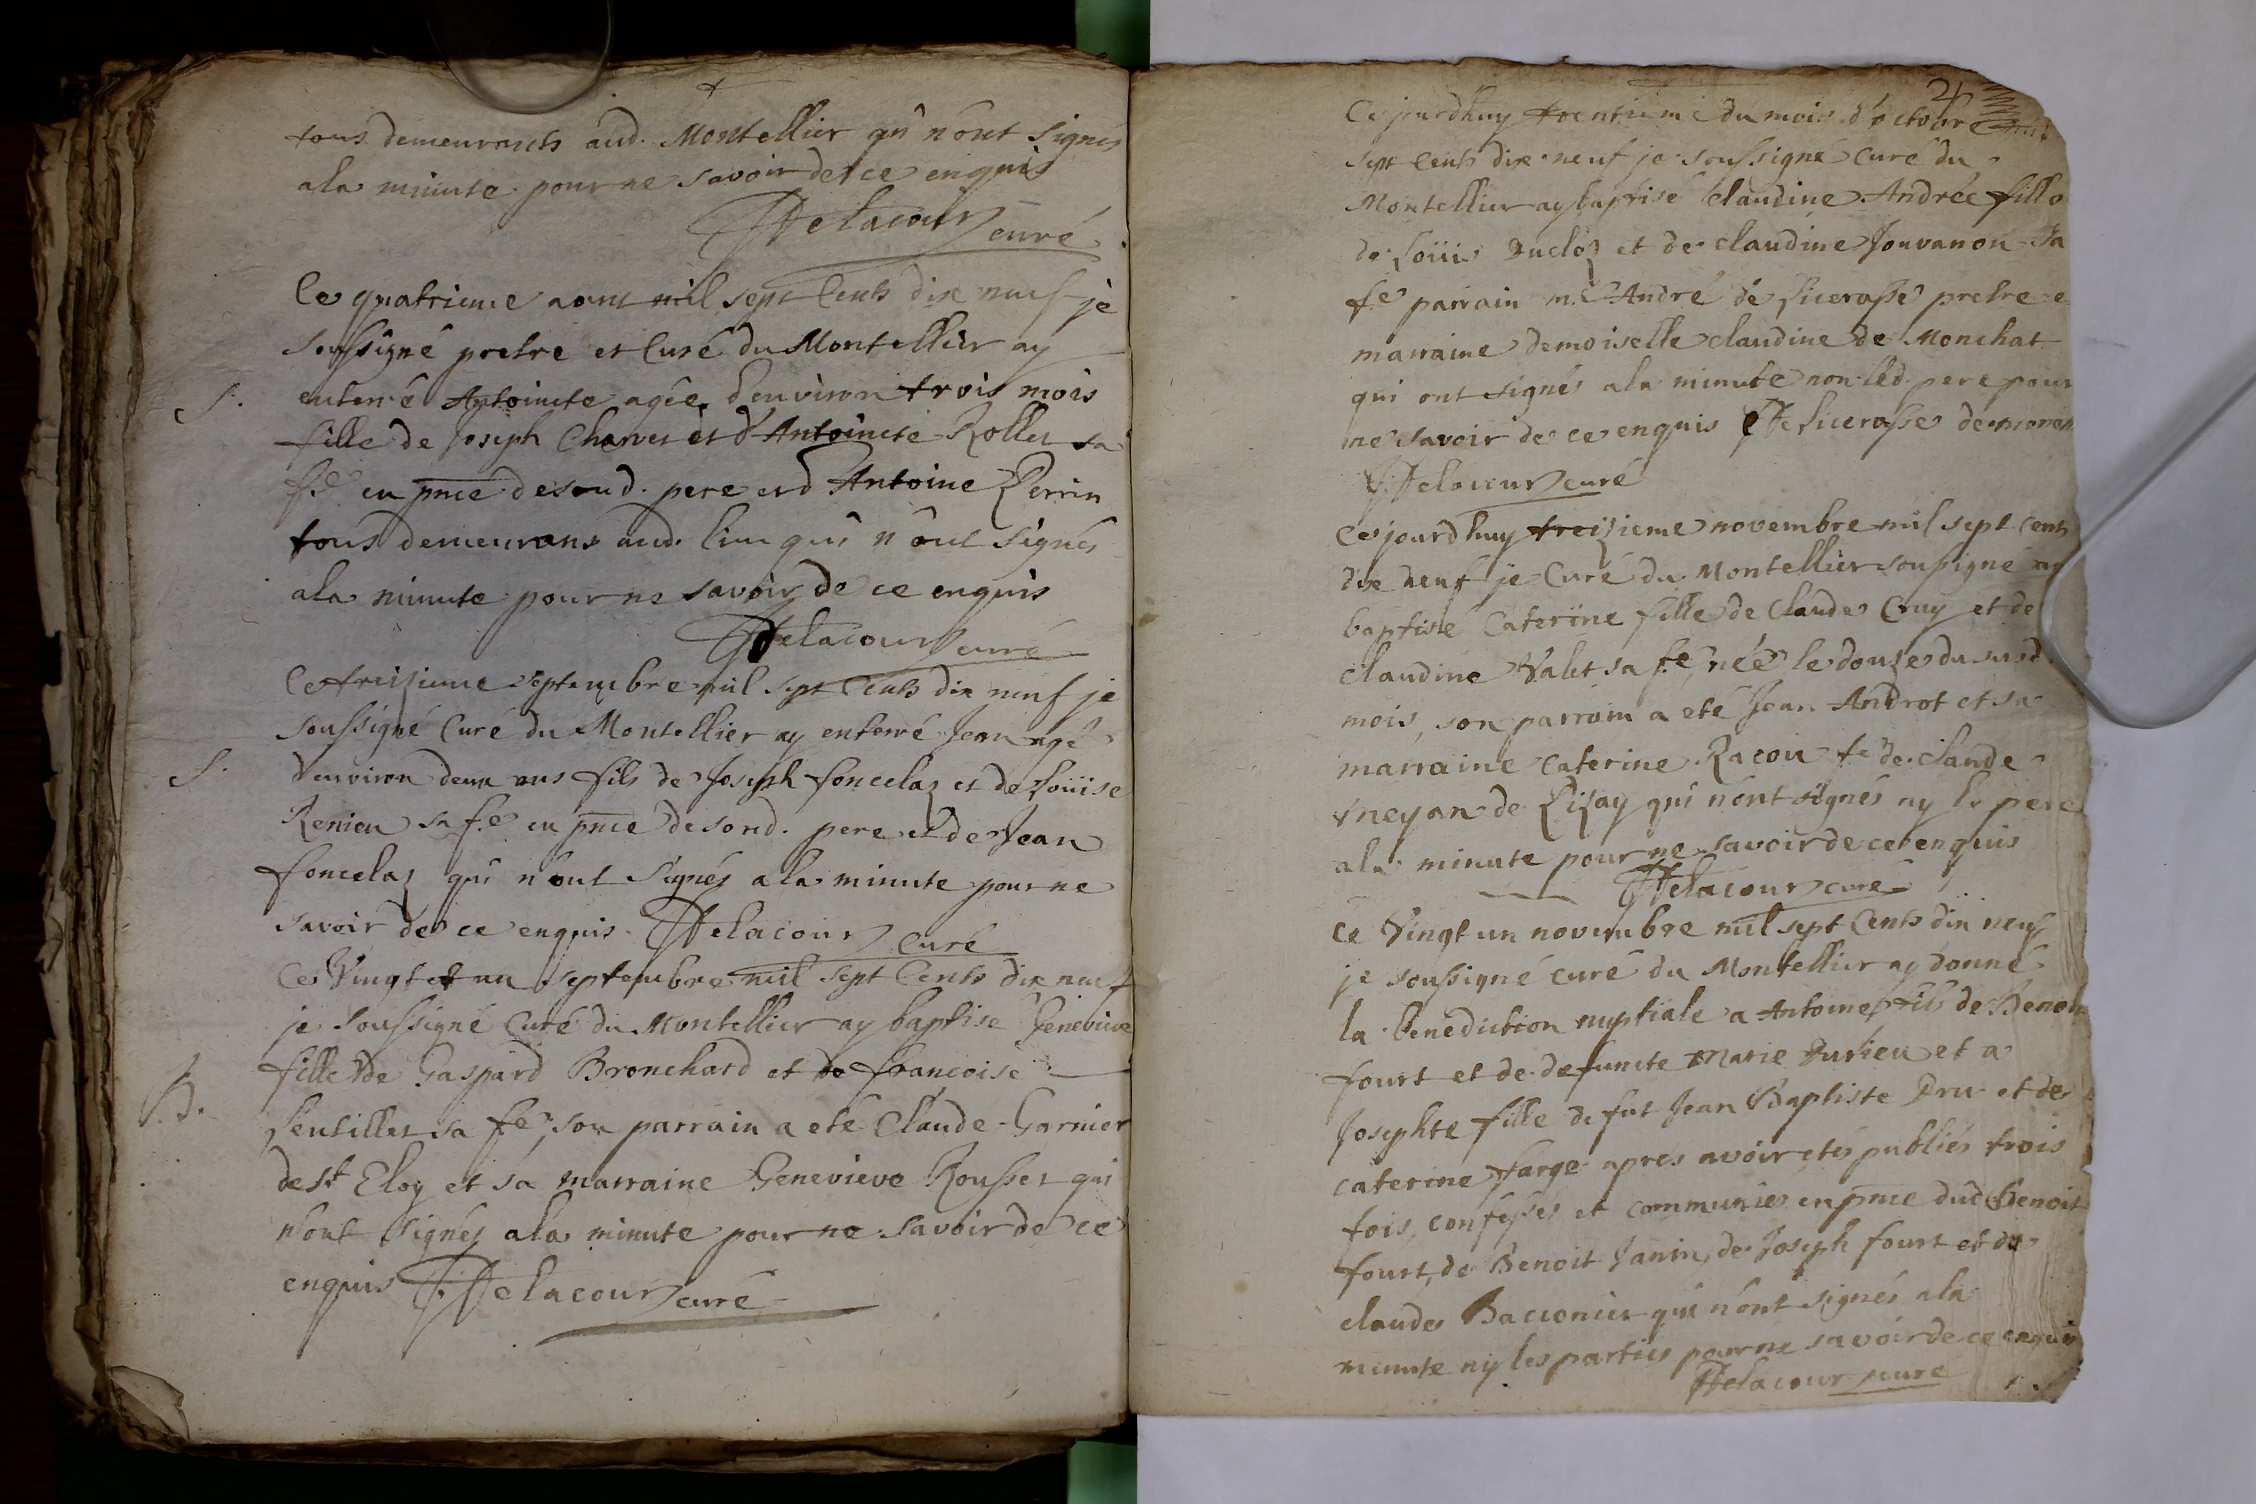 tous demeurants aud. Montellier qui n'ont signés
a la minute pour ne savoir de ce enquis
Delacour curé
Ce quatrieme aout mil sept cents dix neuf je
soussigné pretre et curé du Montellier ay
S. enterré Antoinete agée d'environ trois mois
fille de Joseph Charvet et d'Antoinete Rollet sa
fe en pnce de sond. pere et d'Antoine Perrin
tous demeurans aud. lieu qui n'ont signés
a la minute pour ne savoir de ce enquis
Delacour curé
Ce treizieme septembre mil sept cents dix neuf je
soussigné curé du Montellier ay enterré Jean agé
S. d'environ deux ans fils de Joseph foncelaz et de Loüise
Renieu sa fe en pnce de sond. pere et de Jean
foncelaz qui n'ont signés a la minute pour ne
savoir de ce enquis Delacour curé
Ce vingt et un septembre mil sept cents dix neuf
je soussigné curé du Montellier ay baptisé Genevieve
B. fille de Gaspard Bronchard et de francoise
Sentillet sa fe, son parrain a eté Claude Garnier
de st Eloy et sa marraine Genevieve Rousset qui
n'ont signés a la minute pour ne savoir de ce
enquis Delacour curé
2
Ce jourdhuy trentieme du mois d'octobre mil
sept cents dix neuf je soussigné curé du
Montellier ay baptisé Claudine Andrée fille
de Loüis Ducloz et de claudine Jouvanon sa
fe parrain m.e André de Licerasse pretre e
marraine demoiselle claudine de Monchat
qui ont signés a la minute non led. pere pour
ne savoir de ce enquis De Licerasse
Delacour curé
Ce jourdhuy treizieme novembre mil sept cents
dix neuf je Curé du Montellier soussigné ay
baptisé Caterine fille de Claude Cruy et de
claudine Valet sa fe, née le douze du susd.
mois, son parrain a eté Jean Androt et sa
marraine Caterine Racou fe de claude
meyan de Rizay qui n'ont signés ny le pere
a la minute pour ne savoir de ce enquis
Delacour curé
Ce Vingt un novembre mil sept Cents dix neuf
je soussigné curé du Montellier ay donné
la benediction nuptiale a Antoine fils de Benoit
fourt et de defuncte Marie Durieu et a
Josephte fille de fut Jean Baptiste Dru et de
caterine farge apres avoir etés publiés trois
fois, confessés et communiés en pnce dud Benoit
fourt, de Benoit Janin, de Joseph fourt et de
claude Bacconier qui n'ont signés a la
minute ny les parties pour ne savoir de ce enquis
Delacour curé